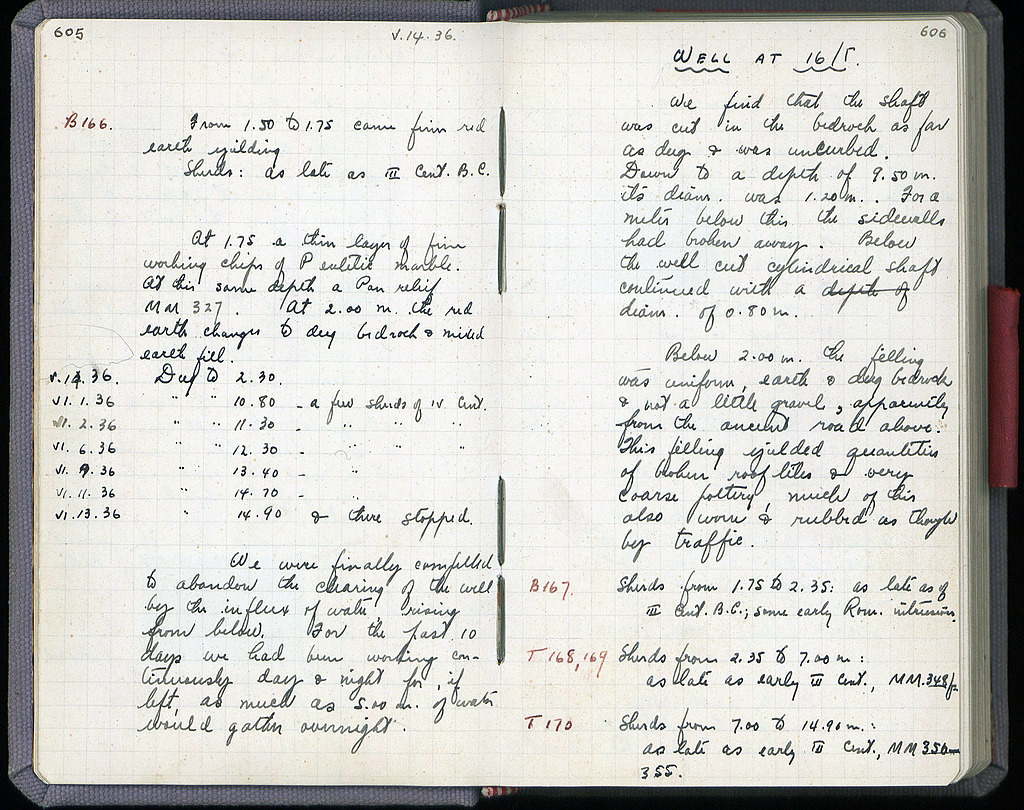 605
V.14.36.
B166.
From 1.50 to 1.75 came firm red
earth yielding
Sherds: as late as III Cent. B.C.
At 1.75 a thin layer of fine
working chips of Pentelic marble.
At this same depth a Pan relief
MM 327. At 2.00 m. the red
earth changes to dug bedrock & mixed
earth fill.
V.14.36. Dug to 2.30.
VI.1.36 " " 10.80 - a few sherds of IV Cent.
VI.2.36 " " 11.30 - " " "
VI.6.36 " 12.30 - " "
VI.9.36 " 13.40 - "
VI.11.36 " 14.70 - "
VI.13.36 " 14.90 & there stopped.
We were finally compelled
to abandon the clearing of the well
by the influx of water rising
from below. For the past 10
days we had been working con-
tinuously day & night for, if
left, as much as 5.00 m. of water
would gather overnight.
606
WELL AT 16/Γ.
We find that the shaft
was cut in the bedrock as far
as dug & was uncurbed.
Down to a depth of 9.50 m.
its diam. was 1.20 m.. For a
meter below this the sidewalls
had broken away. Below
the well cut cylindrical shaft
continued with a depth of
diam. of 0.80 m.
Below 2.00 m. the filling
was uniform, earth & dug bedrock
& not a little gravel, apparently
from the ancient road above.
This filling yielded quantities
of broken rooftiles & very
coarse pottery much of this
also worn & rubbed as though
by traffic.
B167. Sherds from 1.75 to 2.35: as late as of
III Cent. B.C.; some early Rom. intrusion.
T 168,169 Sherds from 2.35 to 7.00 m:
as late as early III Cent., MM.348
T 170 Sherds from 7.00 to 14.90 m.:
as late as early III Cent., MM 350-
355.